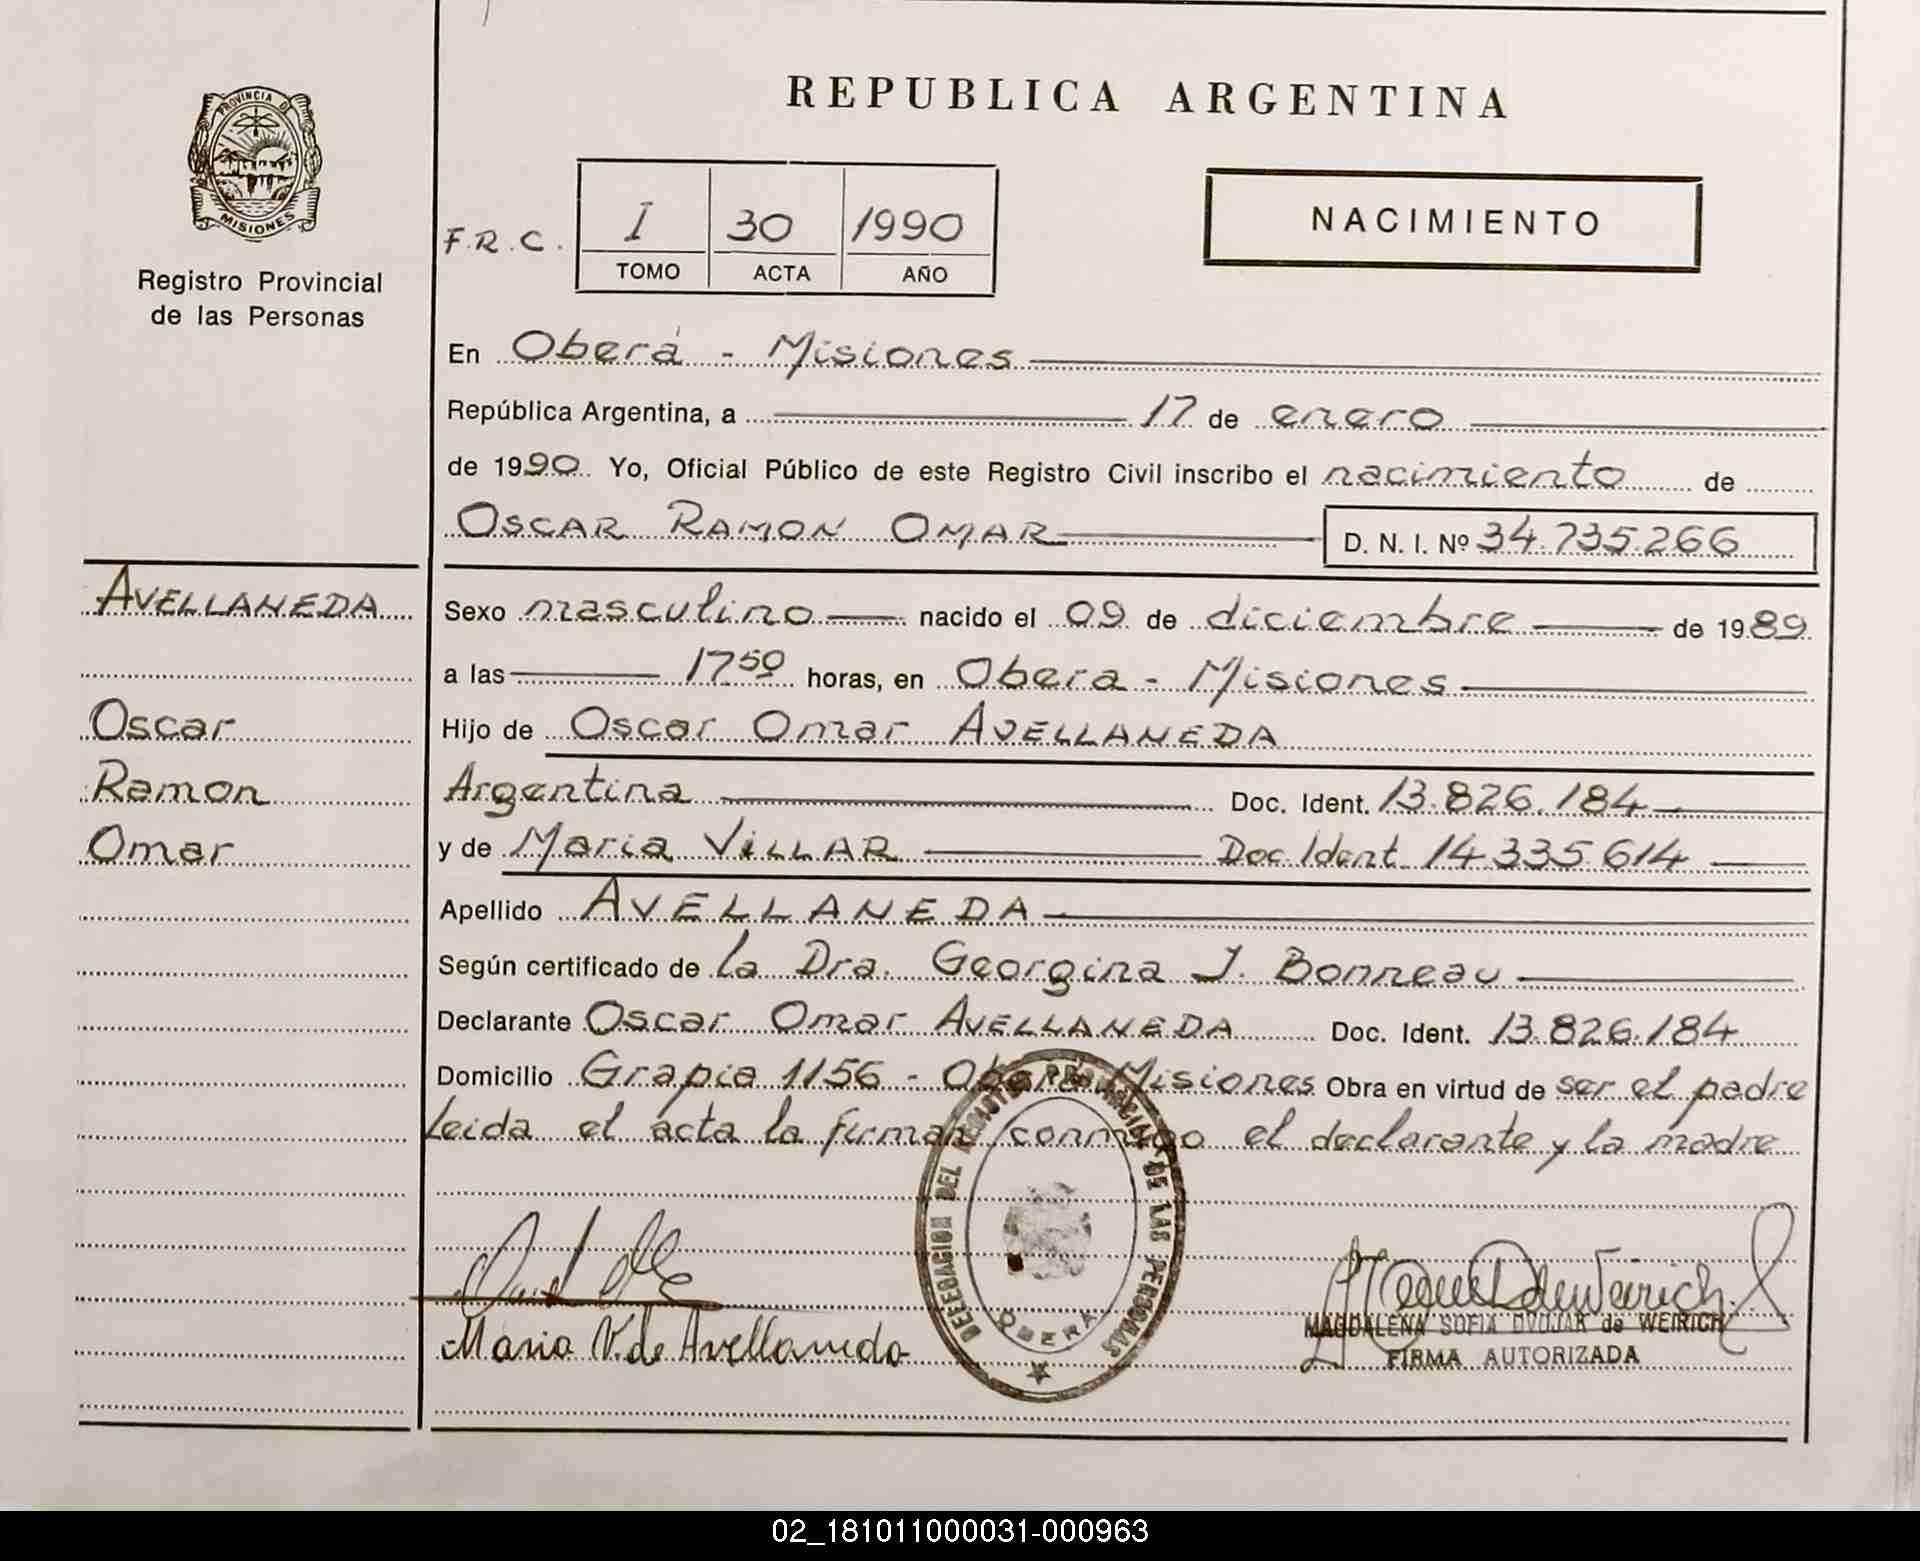 REPUBLICA ARGENTINA
PROVINCIA DE
MISIONES
Registro Provincial
de las Personas
F.R.C.
I 30 1990
TOMO ACTA AÑO
NACIMIENTO
En Oberá - Misiones
República Argentina, a 17 de enero
de 1990 Yo, Oficial Público de este Registro Civil inscribo el nacimiento de
OSCAR RAMON OMAR D. N. I. Nº 34.735.266
AVELLANEDA
Oscar
Ramon
Omar
Sexo masculino nacido el 09 de diciembre de 1989
a las 17 50 horas, en Obera - Misiones
Hijo de Oscar Omar AVELLANEDA
Argentina Doc. Ident. 13.826.184
y de Maria VILLAR Doc Ident. 14.335.614
Apellido AVELLANEDA
Según certificado de la Dra. Georgina J. Bonneau
Declarante Oscar Omar AVELLANEDA Doc. Ident. 13.826.184
Domicilio Grapia 1156 - Oberá Misiones Obra en virtud de ser el padre
Leida el acta la firman conmigo el declarante y la madre
DELEGACION DEL REGISTRO PROVINCIAL DE LAS PERSONAS
OBERA
Maria V. de Avellaneda
MAGDALENA SOFIA DVOJAK de WEIRICH
FIRMA AUTORIZADA
02_181011000031-000963